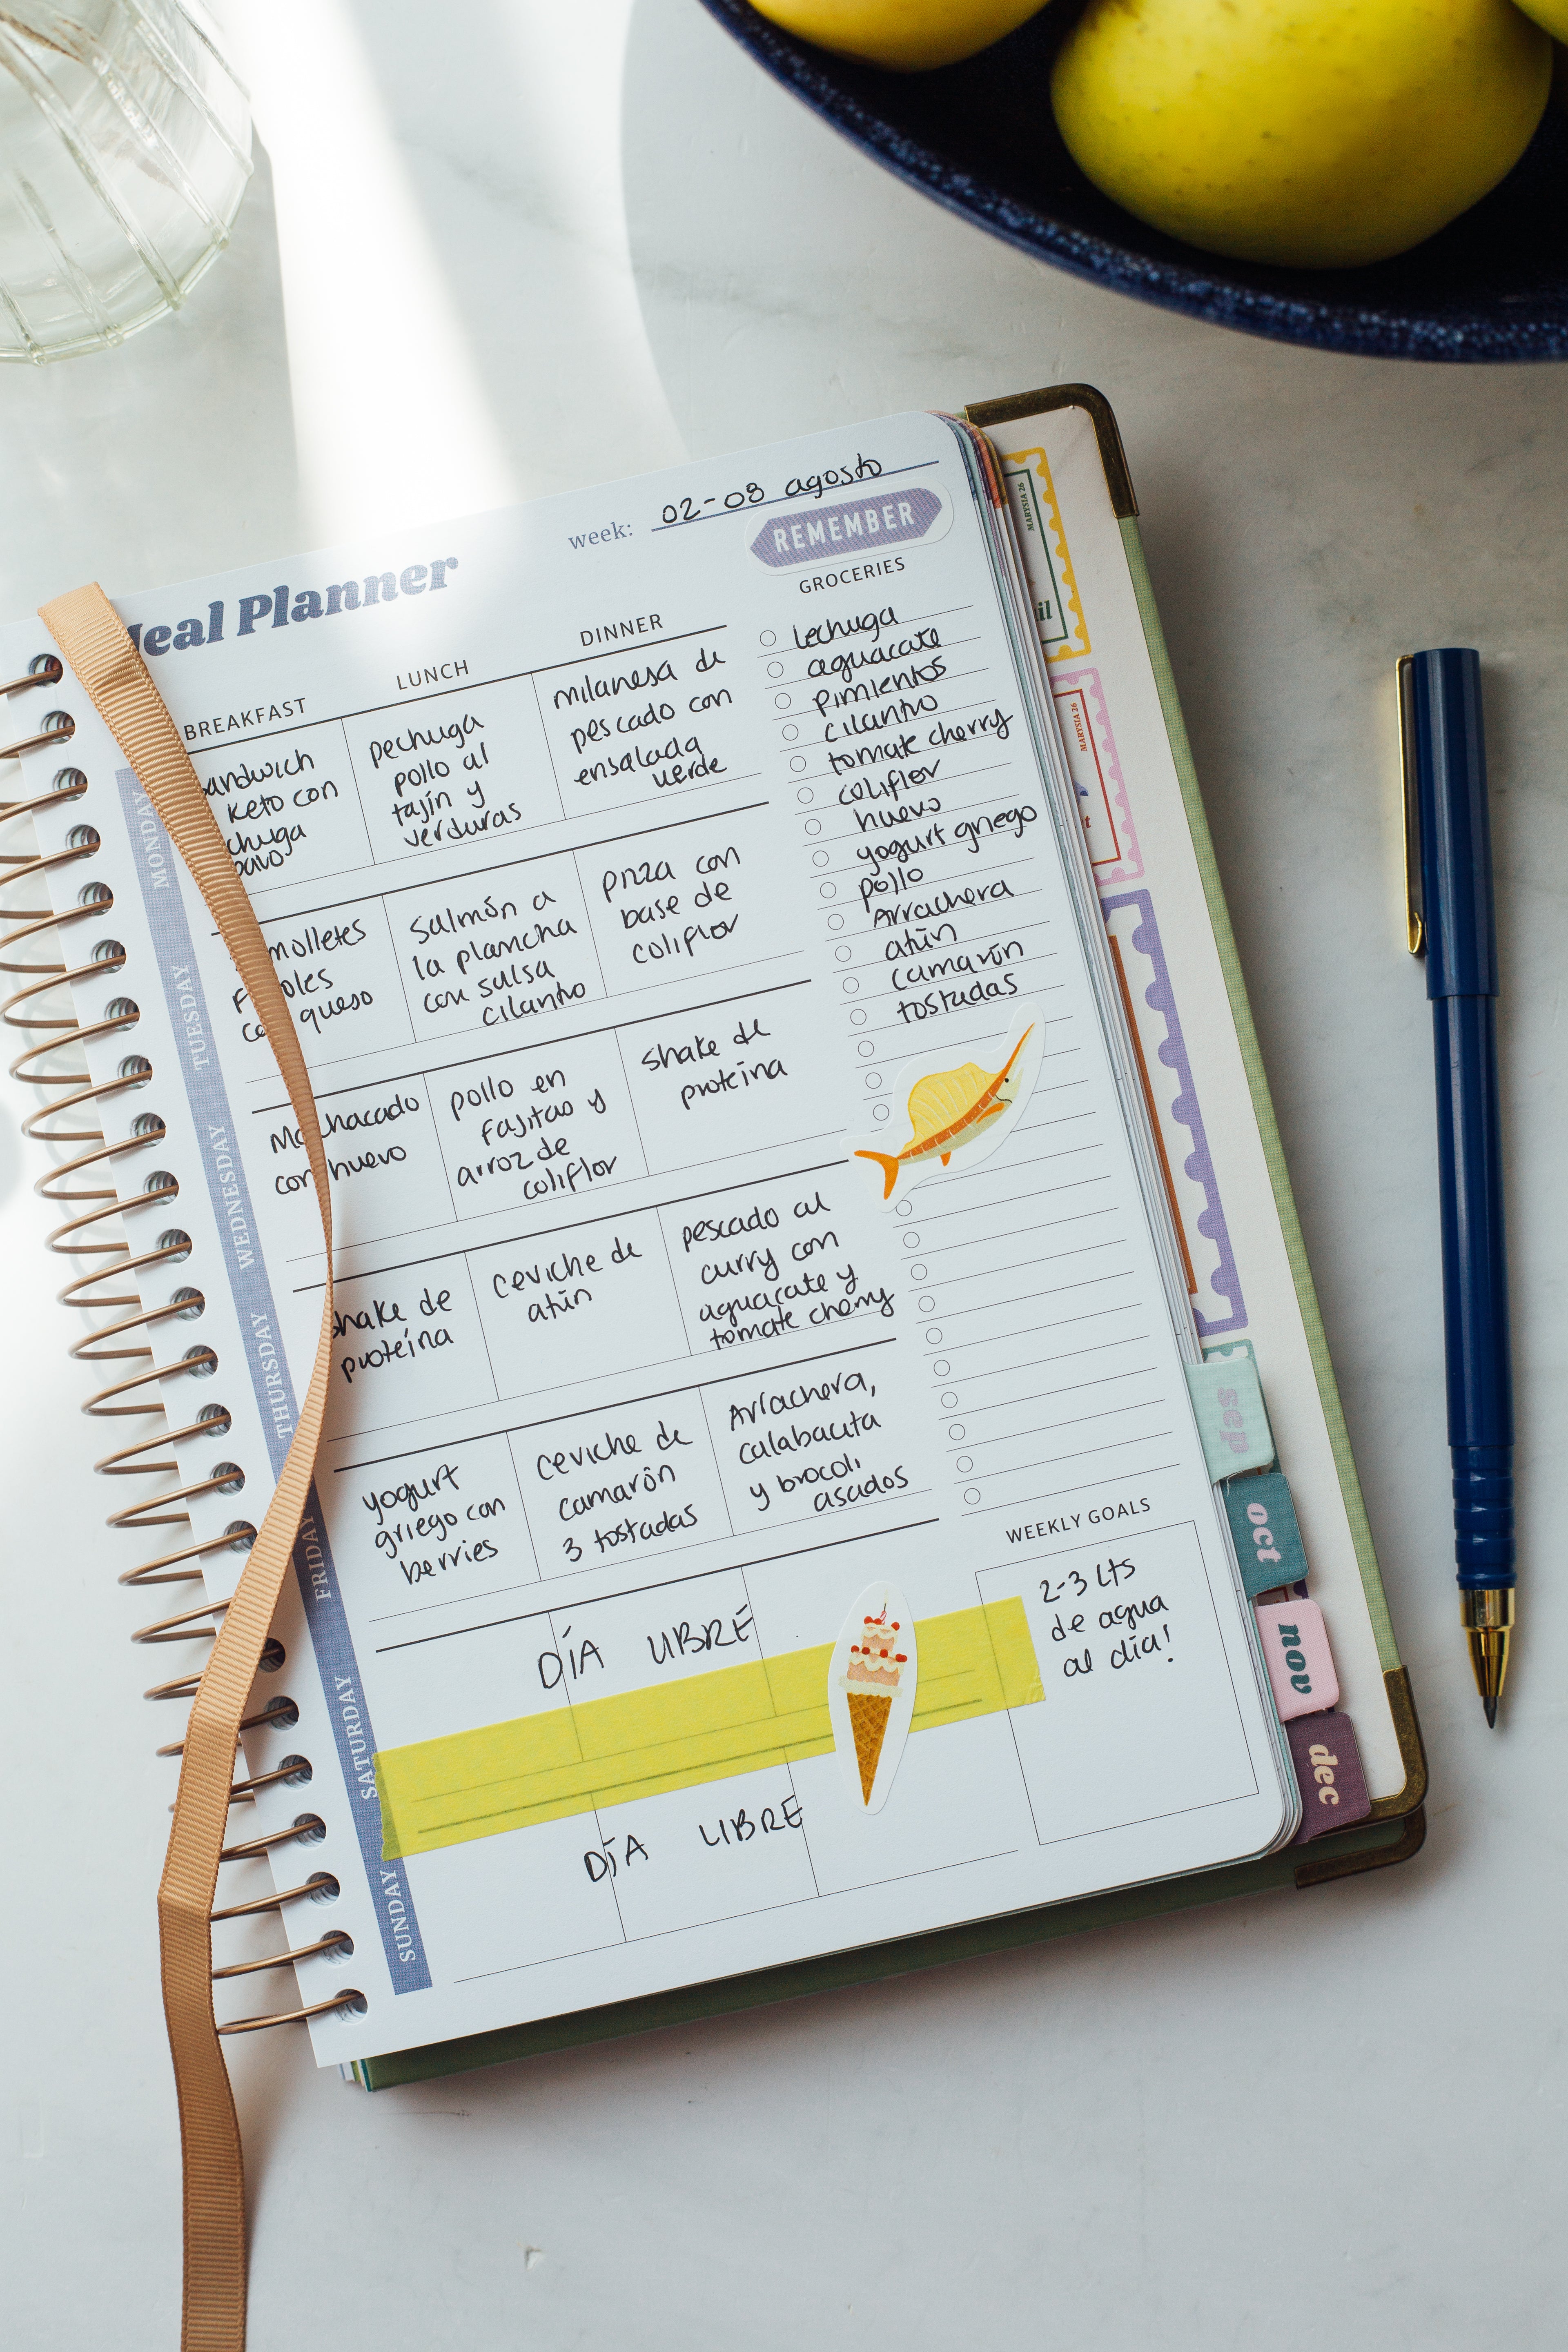 week: 02-08 agosto
Meal Planner
REMEMBER
GROCERIES
BREAKFAST
LUNCH
DINNER
MONDAY
sandwich
keto con
pavo
pechuga
pollo al
tajín y
verduras
milanesa de
pescado con
ensalada
verde
TUESDAY
molletes
queso
salmón a
la plancha
con salsa
cilantro
pizza con
base de
coliflor
WEDNESDAY
Machacado
con huevo
pollo en
fajitas y
arroz de
coliflor
shake de
proteina
THURSDAY
shake de
proteína
ceviche de
atún
pescado al
curry con
aguacate y
tomate cherry
FRIDAY
yogurt
griego con
berries
ceviche de
camarón
3 tostadas
Arrachera,
calabacita
y brocoli
asados
SATURDAY
DÍA LIBRE
SUNDAY
DÍA LIBRE
lechuga
aguacate
pimientos
cilantro
tomate cherry
coliflor
huevo
yogurt griego
pollo
Arrachera
atún
camarón
tostadas
WEEKLY GOALS
2-3 Lts
de agua
al día!
MARYSIA 26
MARYSIA 26
sep
oct
nov
dec